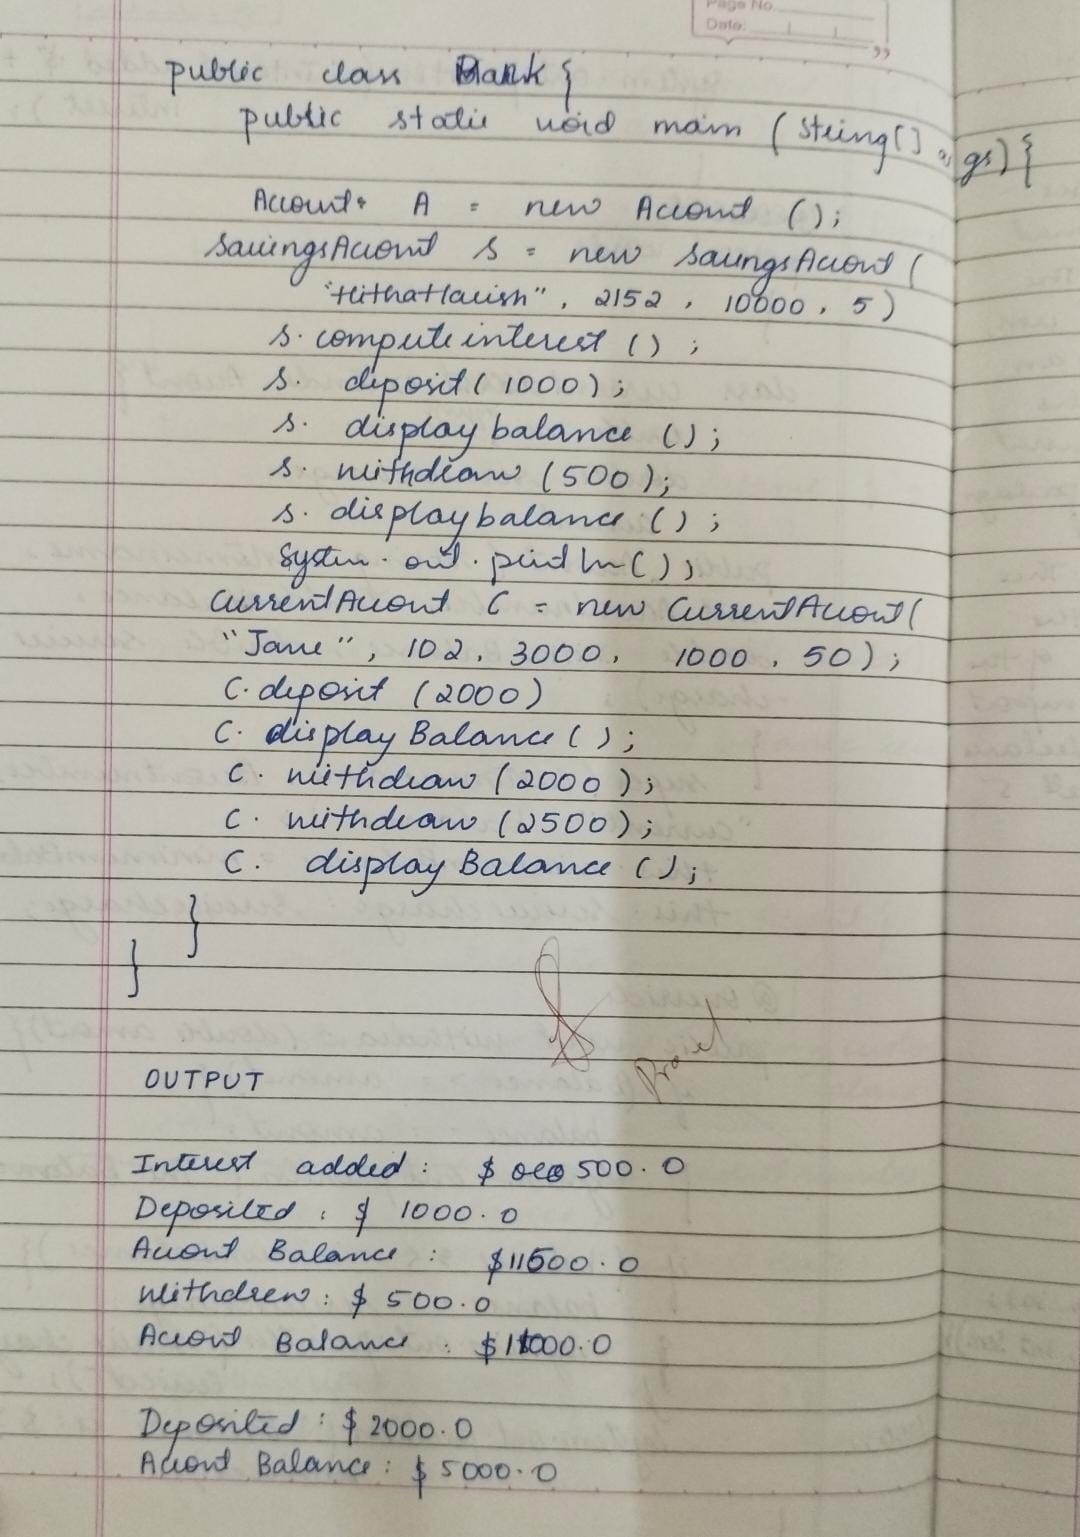 Page No.
Date:
public class Bank {
public static void main (String[] args) {
Account A = new Account ();
SavingsAccount S = new SavingsAccount (
"HithaHarish", 2152, 10000, 5)
S. compute interest () ;
S. deposit (1000);
S. display balance ();
S. withdraw (500);
S. display balance () ;
System. out. println();
CurrentAccount C = new CurrentAccount (
"Jane", 102, 3000, 1000, 50);
C. deposit (2000)
C. display Balance ();
C. withdraw (2000);
C. withdraw (2500);
C. display Balance ();
}
}
OUTPUT
Interest added : $ 500.0
Deposited : $ 1000.0
Account Balance : $11500.0
Withdrew : $ 500.0
Account Balance : $11000.0
Deposited : $ 2000.0
Account Balance : $ 5000.0